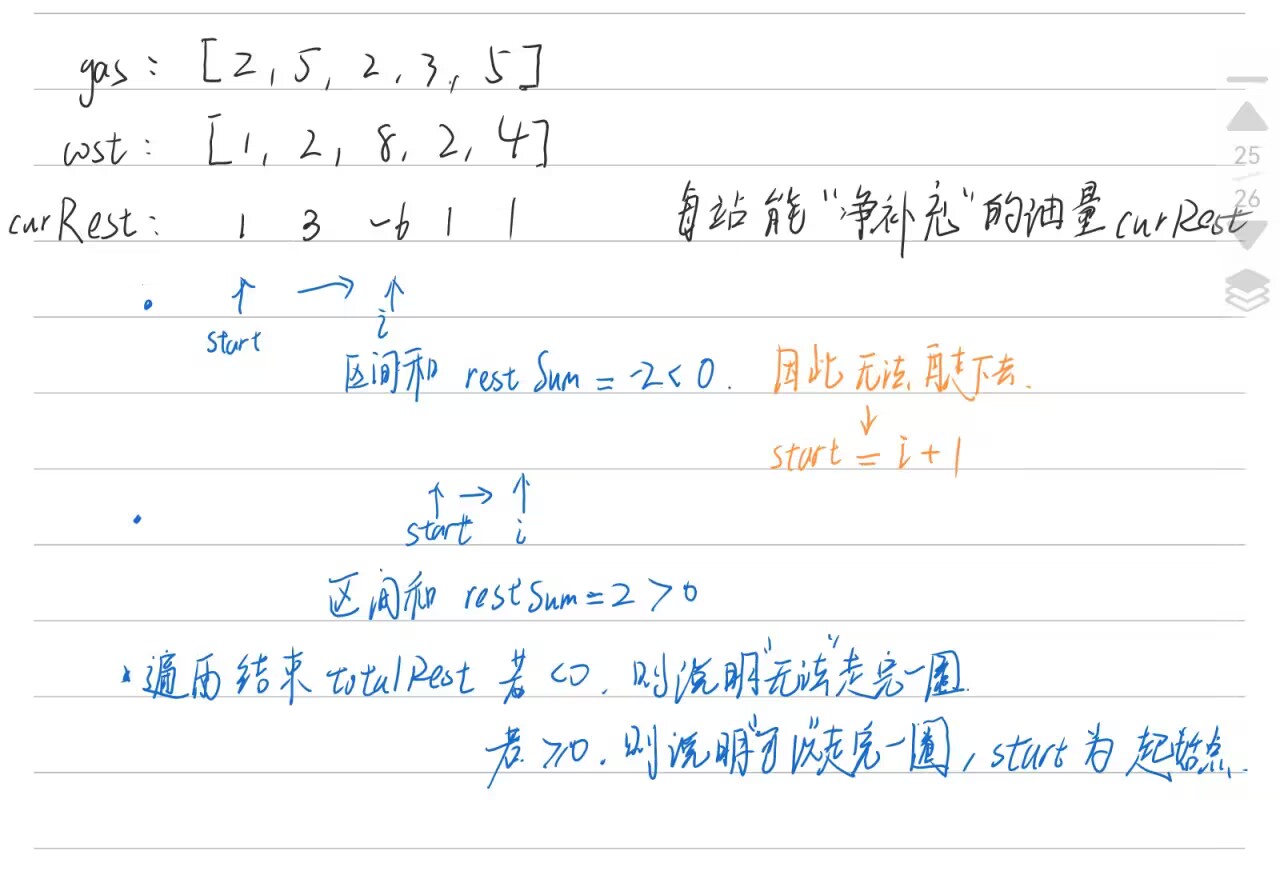 gas: [2, 5, 2, 3, 5]
cost: [1, 2, 8, 2, 4]
curRest: 1 3 -6 1 1 每站能“净补充”的油量 curRest
25
26
start i
区间和 restSum = -2 < 0. 因此无法再走下去.
start = i + 1
start i
区间和 restSum = 2 > 0
遍历结束 totalRest 若 <0, 则说明“无法”走完一圈.
若 ≥0, 则说明“可以”走完一圈, start 为起始点.